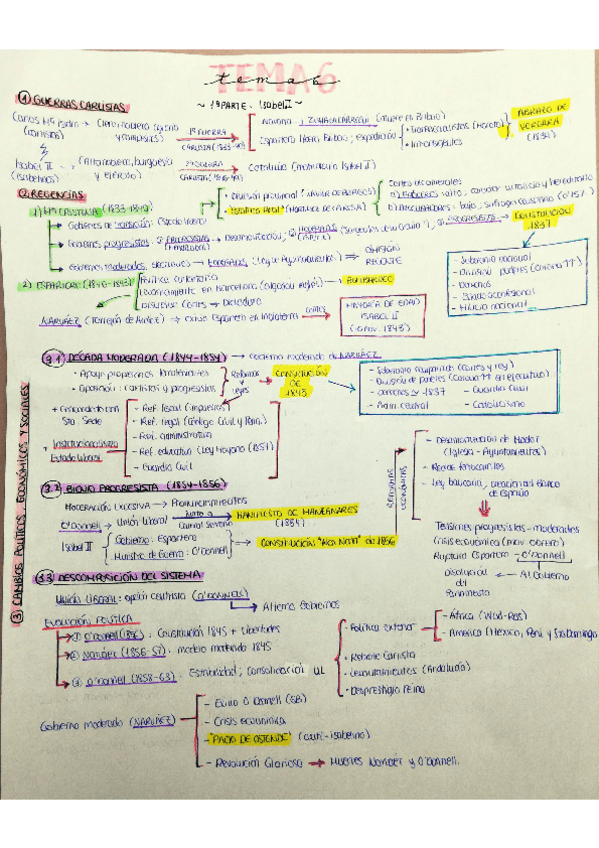 TEMA 6
tema 6
~ 1ª PARTE - Isabel II ~
① GUERRAS CARLISTAS
Carlos Mª Isidro → Clero, nobleza agraria y campesinos
(carlistas)
1ª GUERRA CARLISTA (1833-40)
Navarra → ZUMALACÁRREGUI (muere en Bilbao)
Espartero libera Bilbao; expedición
Transaccionistas (Maroto)
Intransigentes
ABRAZO DE VERGARA (1839)
Isabel II → (Alta nobleza, burguesía y ejército)
(isabelinos)
2ª GUERRA CARLISTA (1846-49)
Cataluña (matrimonio Isabel II)
② REGENCIAS
1) Mª CRISTINA (1833-1840)
Gobiernos de transición: Estatuto
División provincial (JAVIER DE BURGOS)
"Estatuto Real" (MARTÍNEZ DE LA ROSA)
Cortes bicamerales
Gobiernos progresistas
Desamortización;
PROGRESISTAS → CONSTITUCIÓN 1837
Gobiernos moderados, elecciones → (Ley de Ayuntamientos) ⇒ DIMISIÓN REGENTE
- Soberanía nacional
- División poderes
- Derechos
- Milicia nacional
2) ESPARTERO (1840-1843)
Política autoritaria
Levantamiento en Barcelona → BOMBARDEO
Disuelve Cortes → Dictadura
NARVÁEZ (Torrejón de Ardoz) → exilio Espartero en Inglaterra
MAYORÍA DE EDAD ISABEL II (1843)
③ CAMBIOS POLÍTICOS, ECONÓMICOS Y SOCIALES
3.1) DÉCADA MODERADA (1844-1854) → Gobierno moderado de NARVÁEZ
• Apoyo: propietarios, terratenientes
• Oposición: carlistas y progresistas
Reformas y Leyes
CONSTITUCIÓN DE 1845
- Soberanía compartida (Cortes y rey)
- Guardia Civil
- Adm. central
- Catolicismo
+ Concordato con Sta. Sede
+ Institucionalización Estado liberal
- Ref. fiscal (impuestos)
- Ref. legal (Código Civil y Pen.)
- Ref. administrativa
- Ref. educativa (Ley Moyano (1857)
- Guardia Civil
3.2) BIENIO PROGRESISTA (1854-1856)
MODERACIÓN EXCESIVA → Pronunciamientos
O'Donnell → Unión Liberal
MANIFIESTO DE MANZANARES (1854)
Isabel II
Gobierno: Espartero
Ministro de Guerra: O'Donnell
CONSTITUCIÓN "Non Nata" de 1856
REFORMAS ECONÓMICAS
- Desamortización de Madoz (Iglesia - Ayuntamientos)
- Red de ferrocarriles
- Ley bancaria, creación del Banco de España
Tensiones progresistas - moderados
Crisis económica
Ruptura Espartero - O'DONNELL
Al Gobierno
Disolución del Parlamento
3.3) DESCOMPOSICIÓN DEL SISTEMA
UNIÓN LIBERAL: opción centrista (O'DONNELL) → Alterna Gobiernos
EVOLUCIÓN POLÍTICA
① O'Donnell (1856): Constitución 1845 + libertades
② Narváez (1856-57): modelo moderado 1845
③ O'Donnell (1858-63): Estabilidad; Consolidación UL
• Política exterior
- África (Wad-Ras)
- América (México, Perú y Sto Domingo)
• Rebelión Carlista
• Levantamientos (Andalucía)
• Desprestigio Reina
Gobierno moderado (NARVÁEZ)
- Exilio O'Donnell (GB)
- Crisis económica
- "PACTO DE OSTENDE" (anti-isabelino)
- Revolución Gloriosa → Muertes Narváez y O'Donnell.